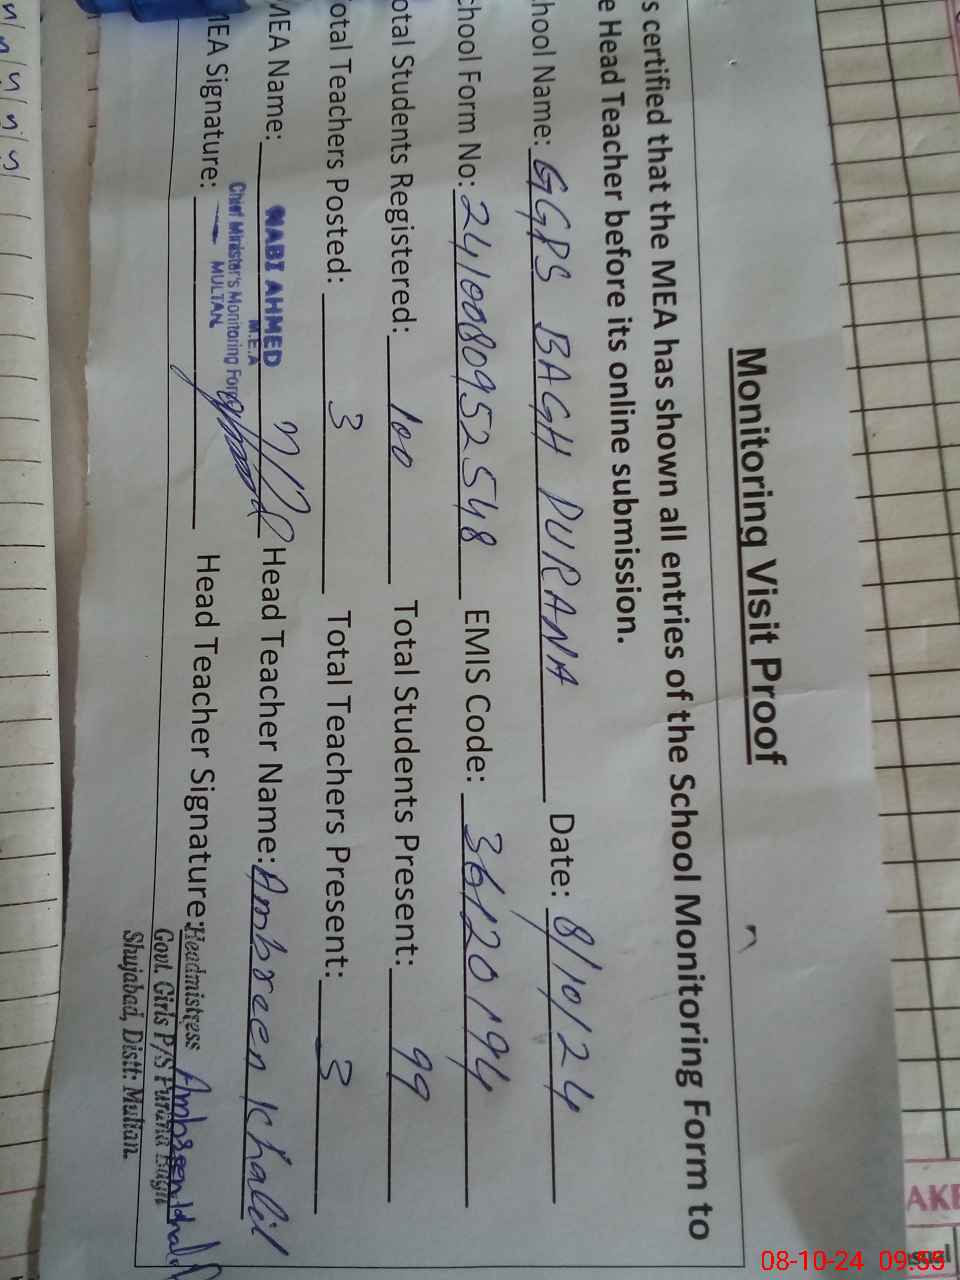 Monitoring Visit Proof
s certified that the MEA has shown all entries of the School Monitoring Form to
e Head Teacher before its online submission.
hool Name: GGPS BAGH PURANA Date: 8/10/24
chool Form No: 2410080952548 EMIS Code: 36120194
otal Students Registered: 100 Total Students Present: 99
otal Teachers Posted: 3 Total Teachers Present: 3
MEA Name: NABI AHMED Head Teacher Name: Ambreen Khalid
M.E.A
Chief Minister's Monitoring Force
MULTAN
MEA Signature: Head Teacher Signature: Headmistress
Ambreen Khalid
Govt. Girls P/S Purana Bagh
Shujabad, Distt: Multan.
AKE
08-10-24 09:55